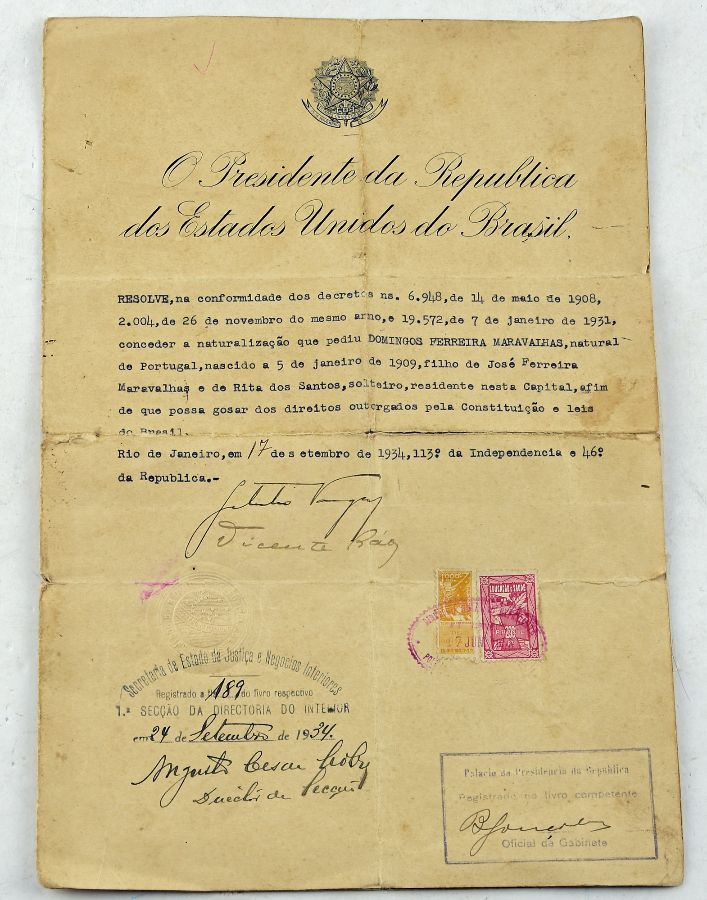 O Presidente da Republica
dos Estados Unidos do Brasil.
RESOLVE,na conformidade dos decretos ns. 6.948,de 14 de maio de 1908,
2.004,de 26 de novembro do mesmo anno,e 19.572,de 7 de janeiro de 1931,
conceder a naturalização que pediu DOMINGOS FERREIRA MARAVALHAS,natural
de Portugal,nascido a 5 de janeiro de 1909,filho de José Ferreira
Maravalhas e de Rita dos Santos,solteiro,residente nesta Capital,afim
de que possa gosar dos direitos outorgados pela Constituição e leis
do Brasil.
Rio de Janeiro,em 17 de setembro de 1934,113º da Independencia e 46º
da Republica.-
Getulio Vargas
Vicente Ráo
EDUCAÇÃO E SAUDE
200
7 JUN
Secretaria de Estado da Justiça e Negocios Interiores
Registrado a fl 189 do livro respectivo
1.ª SECÇÃO DA DIRECTORIA DO INTERIOR
em 24 de Setembro de 1934.
Augusto Cesar
Director de Secção
Palacio da Presidencia da Republica
Registrado no livro competente
Official de Gabinete